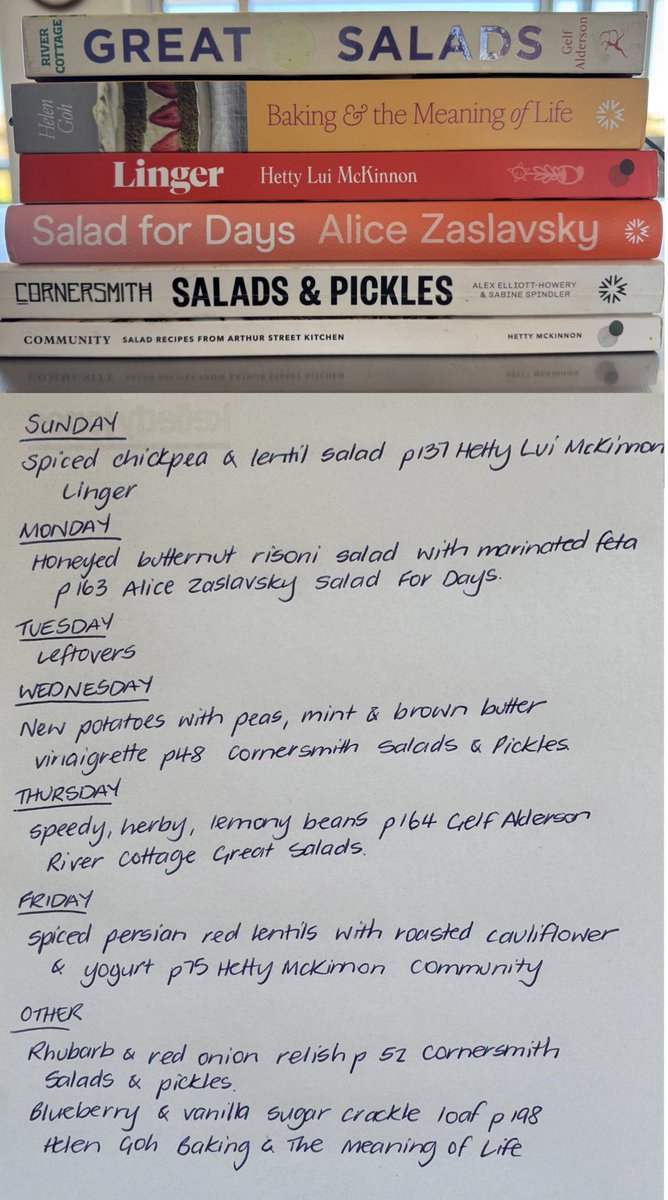 RIVER COTTAGE GREAT SALADS Gelf Alderson
Helen Goh Baking & the Meaning of Life
Linger Hetty Lui McKinnon
Salad for Days Alice Zaslavsky
CORNERSMITH SALADS & PICKLES ALEX ELLIOTT-HOWERY & SABINE SPINDLER
COMMUNITY SALAD RECIPES FROM ARTHUR STREET KITCHEN HETTY MCKINNON
SUNDAY
Spiced chickpea & lentil salad p137 Hetty Lui McKinnon
Linger
MONDAY
Honeyed butternut risoni salad with marinated feta
p163 Alice Zaslavsky Salad For Days.
TUESDAY
Leftovers
WEDNESDAY
New potatoes with peas, mint & brown butter
vinaigrette p48 Cornersmith Salads & Pickles
THURSDAY
Speedy, herby, lemony beans p164 Gelf Alderson
River Cottage Great Salads.
FRIDAY
Spiced persian red lentils with roasted cauliflower
& yogurt p75 Hetty McKinnon Community
OTHER
Rhubarb & red onion relish p 52 Cornersmith
Salads & pickles.
Blueberry & vanilla sugar crackle loaf p198
Helen Goh Baking & The Meaning of Life